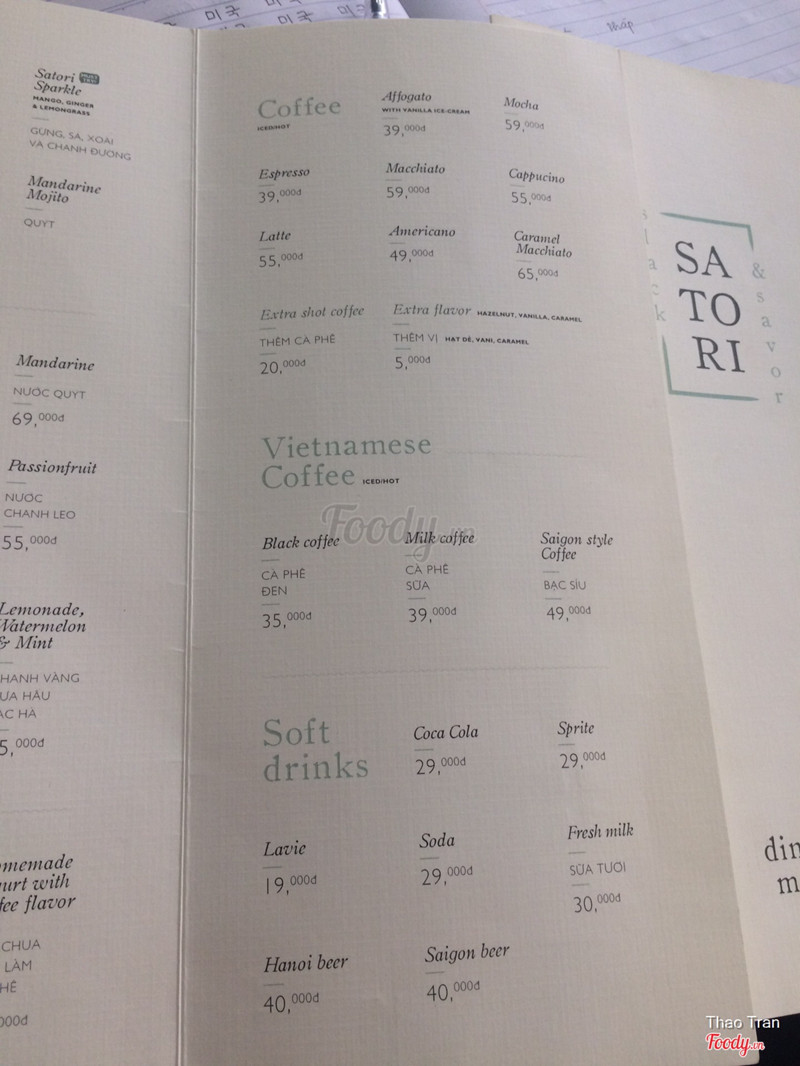 미국
미국
미국
Satori
Sparkle
MUST TRY
MANGO, GINGER
& LEMONGRASS
GỪNG, SẢ, XOÀI
VÀ CHANH ĐƯỜNG
Mandarine
Mojito
QUÝT
Mandarine
NƯỚC QUÝT
69,000đ
Passionfruit
NƯỚC
CHANH LEO
55,000đ
Lemonade,
Watermelon
& Mint
HANH VÀNG
ƯA HẤU
ẠC HÀ
5,000đ
omemade
urt with
fee flavor
CHUA
LÀM
HÊ
000đ
Coffee
ICED/HOT
Affogato
WITH VANILLA ICE-CREAM
39,000đ
Mocha
59,000đ
Espresso
39,000đ
Macchiato
59,000đ
Cappucino
55,000đ
Latte
55,000đ
Americano
49,000đ
Caramel
Macchiato
65,000đ
Extra shot coffee
THÊM CÀ PHÊ
20,000đ
Extra flavor HAZELNUT, VANILLA, CARAMEL
THÊM VỊ HẠT DẺ, VANI, CARAMEL
5,000đ
Vietnamese
Coffee ICED/HOT
Black coffee
CÀ PHÊ
ĐEN
35,000đ
Milk coffee
CÀ PHÊ
SỮA
39,000đ
Saigon style
Coffee
BẠC SỈU
49,000đ
Soft
drinks
Coca Cola
29,000đ
Sprite
29,000đ
Lavie
19,000đ
Soda
29,000đ
Fresh milk
SỮA TƯƠI
30,000đ
Hanoi beer
40,000đ
Saigon beer
40,000đ
slack
SA
TO
RI
& savor
din
m
Foody.vn
Thao Tran
Foody.vn